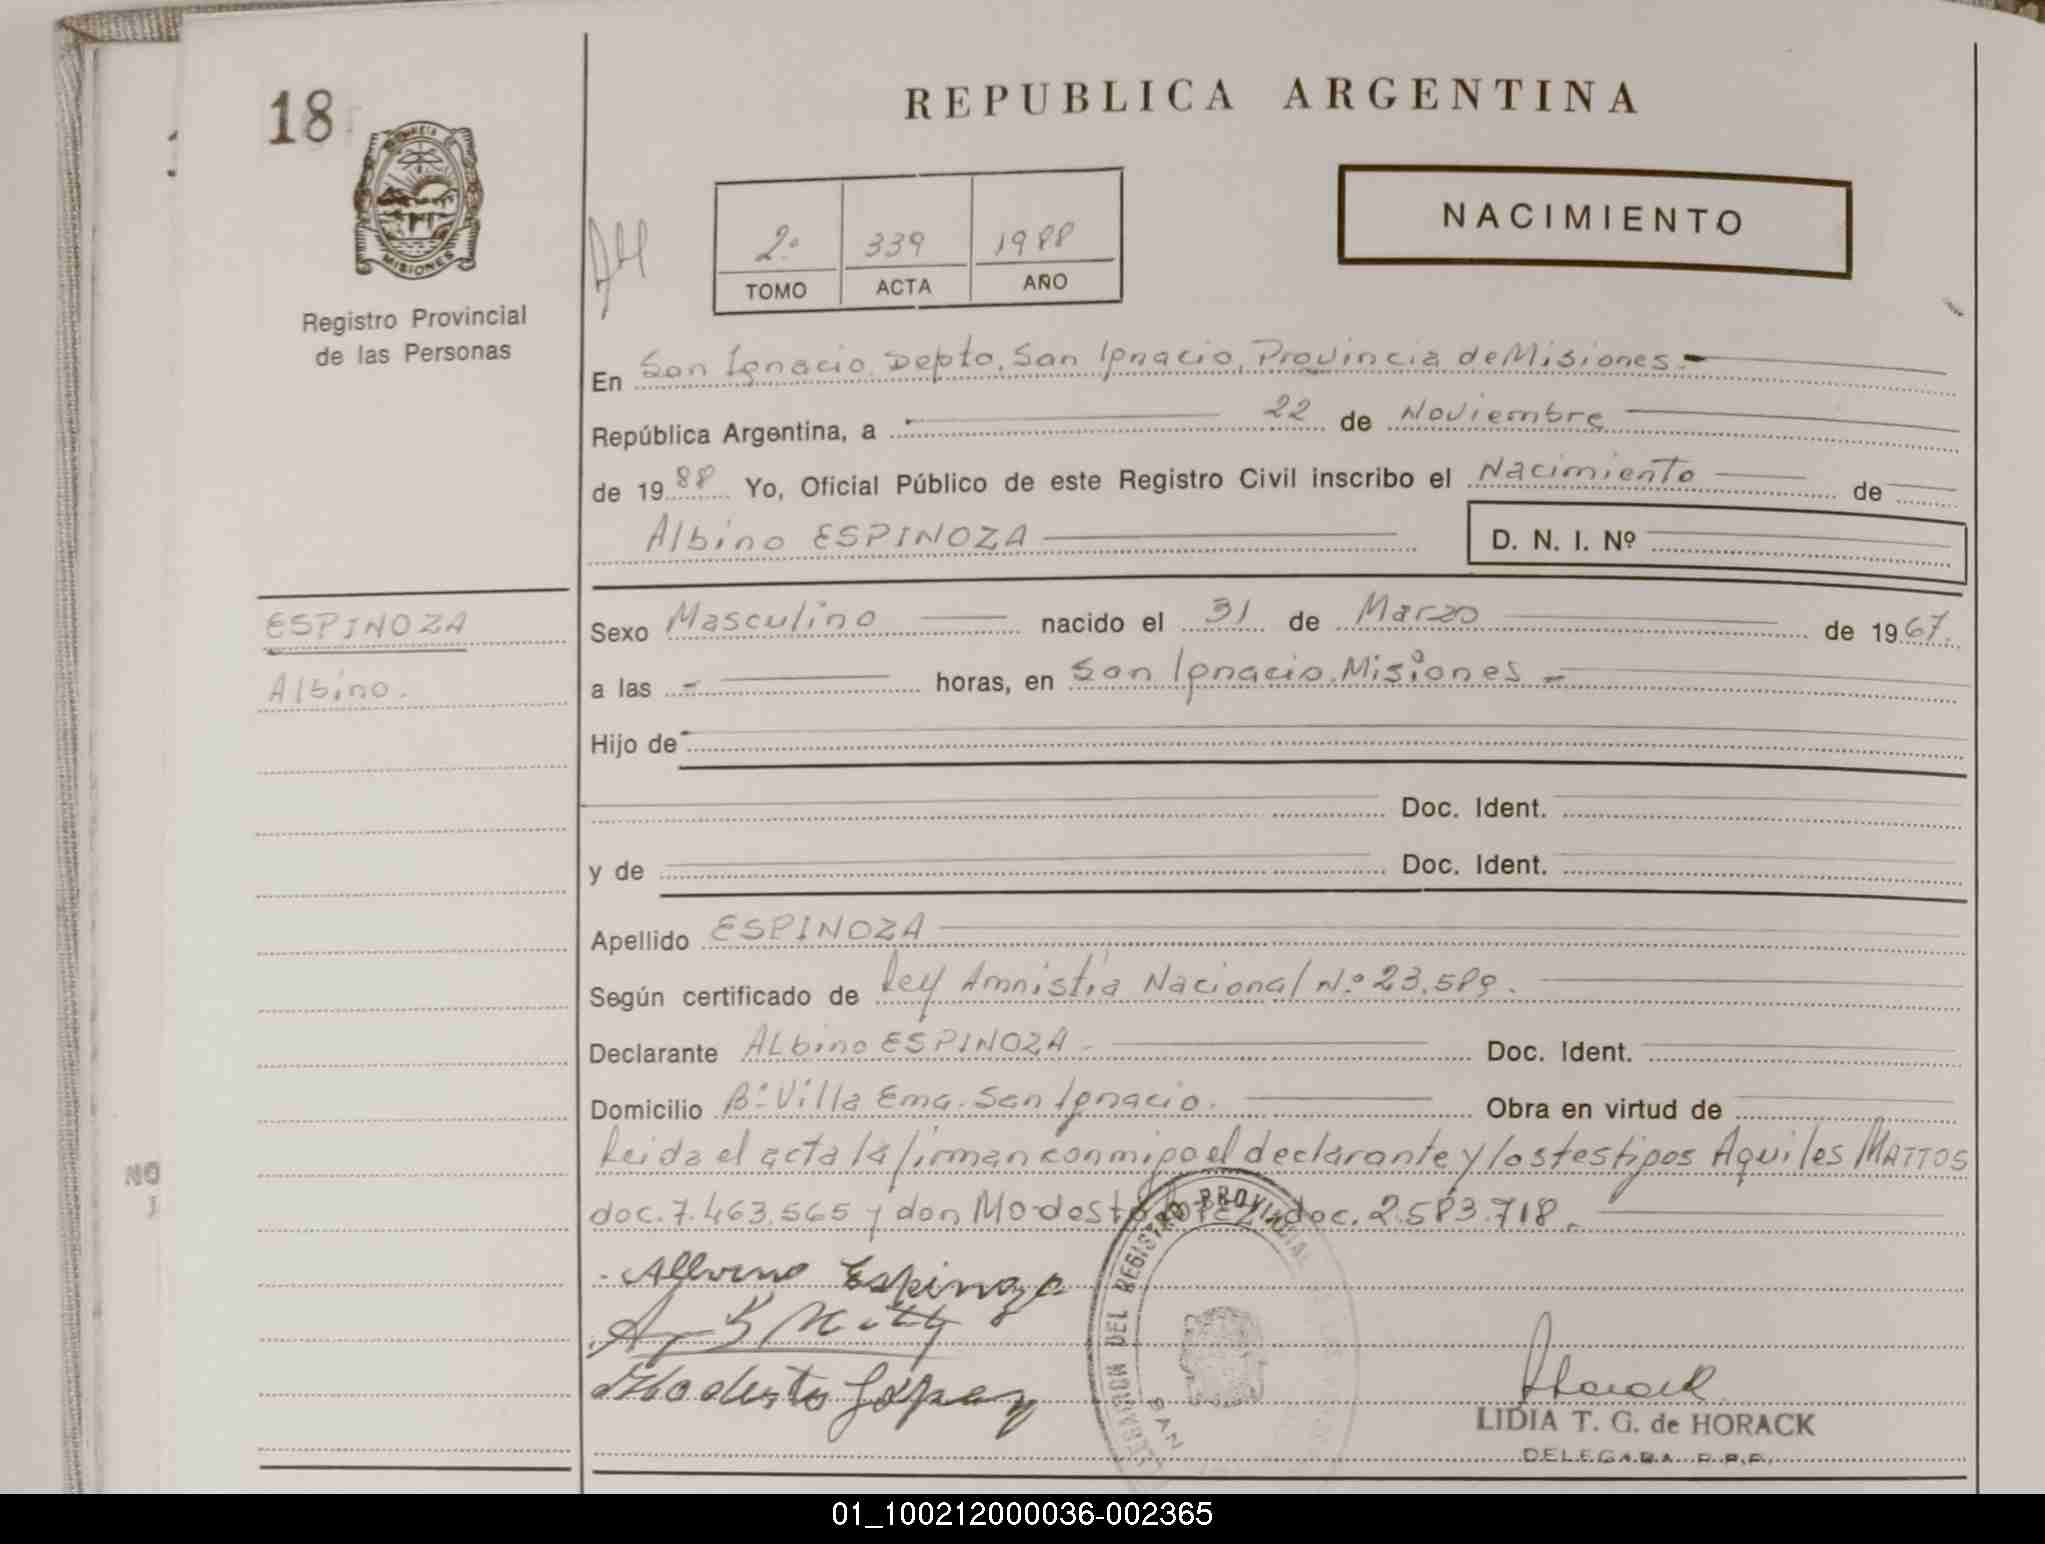 18
REPUBLICA ARGENTINA
NACIMIENTO
2º 339 1988
TOMO ACTA AÑO
MISIONES
Registro Provincial
de las Personas
En San Ignacio, Depto. San Ignacio, Provincia de Misiones.-
República Argentina, a 22 de Noviembre
de 1988 Yo, Oficial Público de este Registro Civil inscribo el Nacimiento de
Albino ESPINOZA D. N. I. Nº
ESPINOZA
Albino.
Sexo Masculino nacido el 31 de Marzo de 1967.
a las - horas, en San Ignacio, Misiones -
Hijo de
Doc. Ident.
y de Doc. Ident.
Apellido ESPINOZA
Según certificado de Ley Amnistia Nacional Nº 23.589.
Declarante ALbino ESPINOZA - Doc. Ident.
Domicilio Bº Villa Ema. San Ignacio. Obra en virtud de
Leida el acta la firman conmigo el declarante y los testigos Aquiles MATTOS
NO
doc. 7.463.565 y don Modesto LOPEZ doc. 2.583.718.
Espinoza
Modesto López
DEL REGISTRO PROVINCIAL
SAN
LIDIA T. G. de HORACK
DELEGADA R.P.P.
01_100212000036-002365